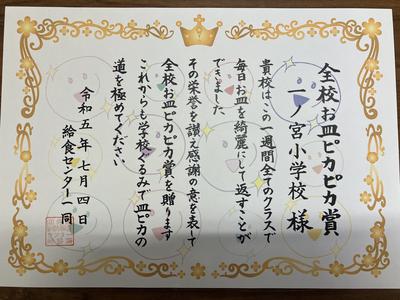 全校お皿ピカピカ賞
一ノ宮小学校 様
貴校はこの一週間全てのクラスで
毎日お皿を綺麗にして返すことが
できました
その栄誉を讃え感謝の意を表して
全校お皿ピカピカ賞を贈ります
これからも学校ぐるみで皿ピカの
道を極めてください
令和五年七月四日
給食センター一同